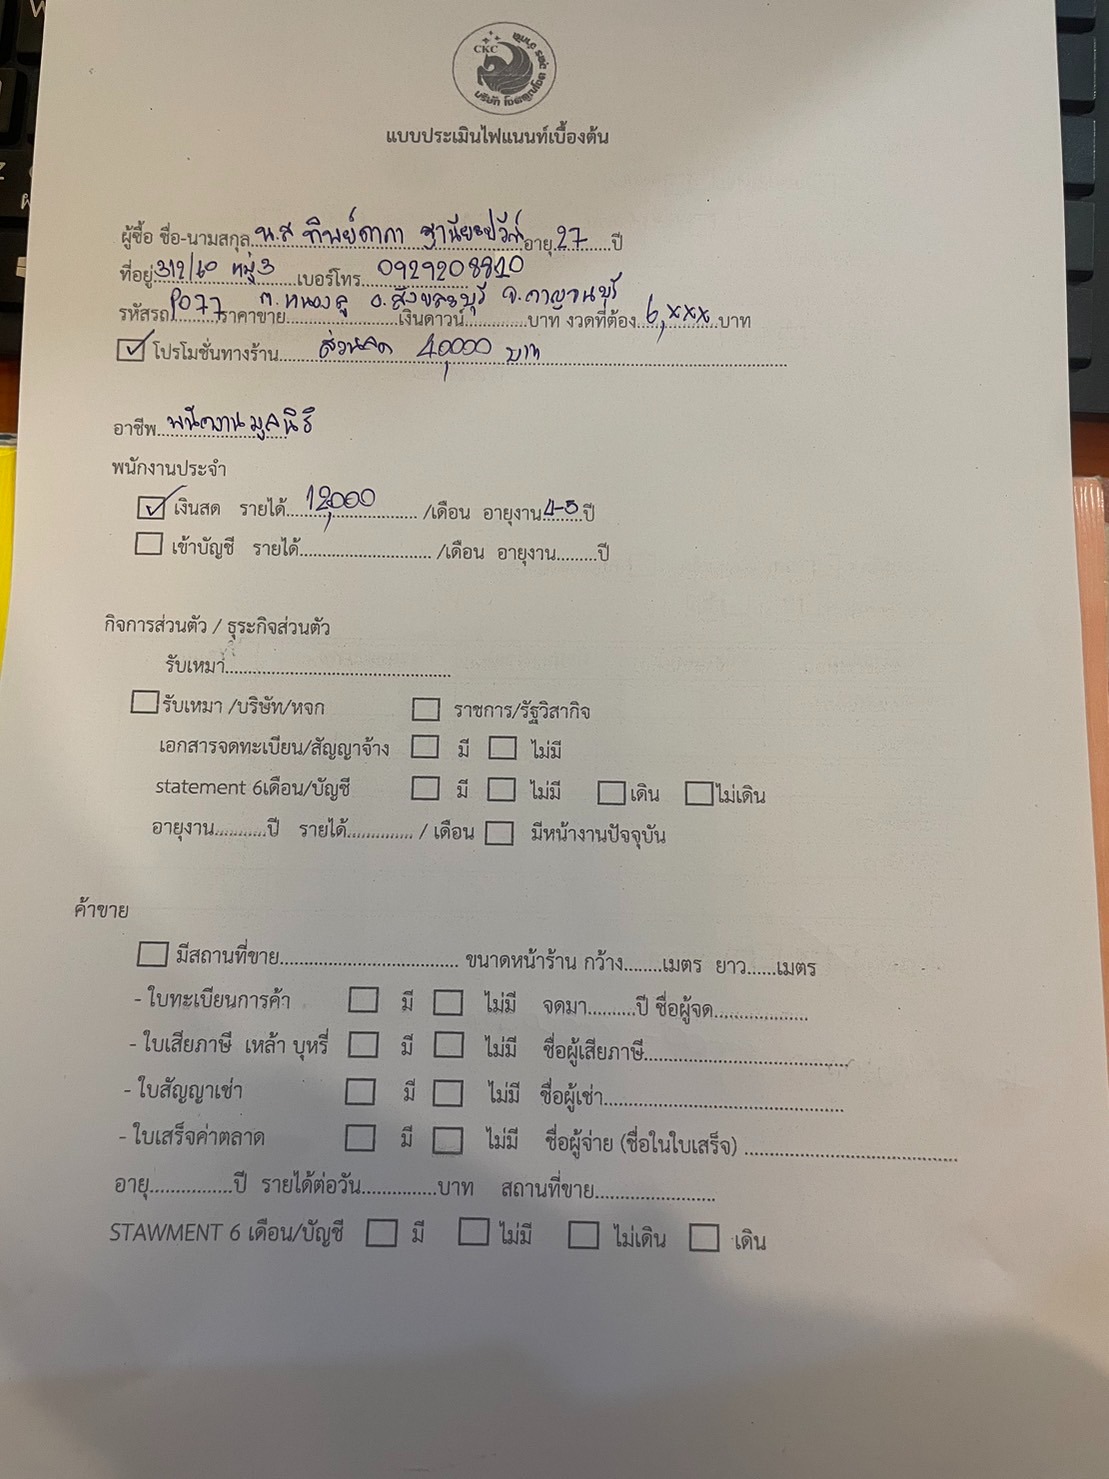 CKC
แบบประเมินไฟแนนท์เบื้องต้น
ผู้ซื้อ ชื่อ-นามสกุล น.ส ทิพย์ดาภา อายุ 27 ปี
ที่อยู่ 312/60 หมู่ 3 เบอร์โทร 0929208810
ต.หนองลู อ.สังขละบุรี จ.กาญจนบุรี
รหัสรถ P077 ราคาขาย เงินดาวน์ บาท งวดที่ต้อง 6,xxx บาท
โปรโมชั่นทางร้าน ส่วนลด 40,000 บาท
อาชีพ พนักงานมูลนิธิ
พนักงานประจำ
เงินสด รายได้ 12,000 /เดือน อายุงาน 4-5 ปี
เข้าบัญชี รายได้ /เดือน อายุงาน ปี
กิจการส่วนตัว / ธุระกิจส่วนตัว
รับเหมา
รับเหมา /บริษัท/หจก ราชการ/รัฐวิสากิจ
เอกสารจดทะเบียน/สัญญาจ้าง มี ไม่มี
statement 6เดือน/บัญชี มี ไม่มี เดิน ไม่เดิน
อายุงาน ปี รายได้ / เดือน มีหน้างานปัจจุบัน
ค้าขาย
มีสถานที่ขาย ขนาดหน้าร้าน กว้าง เมตร ยาว เมตร
- ใบทะเบียนการค้า มี ไม่มี จดมา ปี ชื่อผู้จด
- ใบเสียภาษี เหล้า บุหรี่ มี ไม่มี ชื่อผู้เสียภาษี
- ใบสัญญาเช่า มี ไม่มี ชื่อผู้เช่า
- ใบเสร็จค่าตลาด มี ไม่มี ชื่อผู้จ่าย (ชื่อในใบเสร็จ)
อายุ ปี รายได้ต่อวัน บาท สถานที่ขาย
STAWMENT 6 เดือน/บัญชี มี ไม่มี ไม่เดิน เดิน